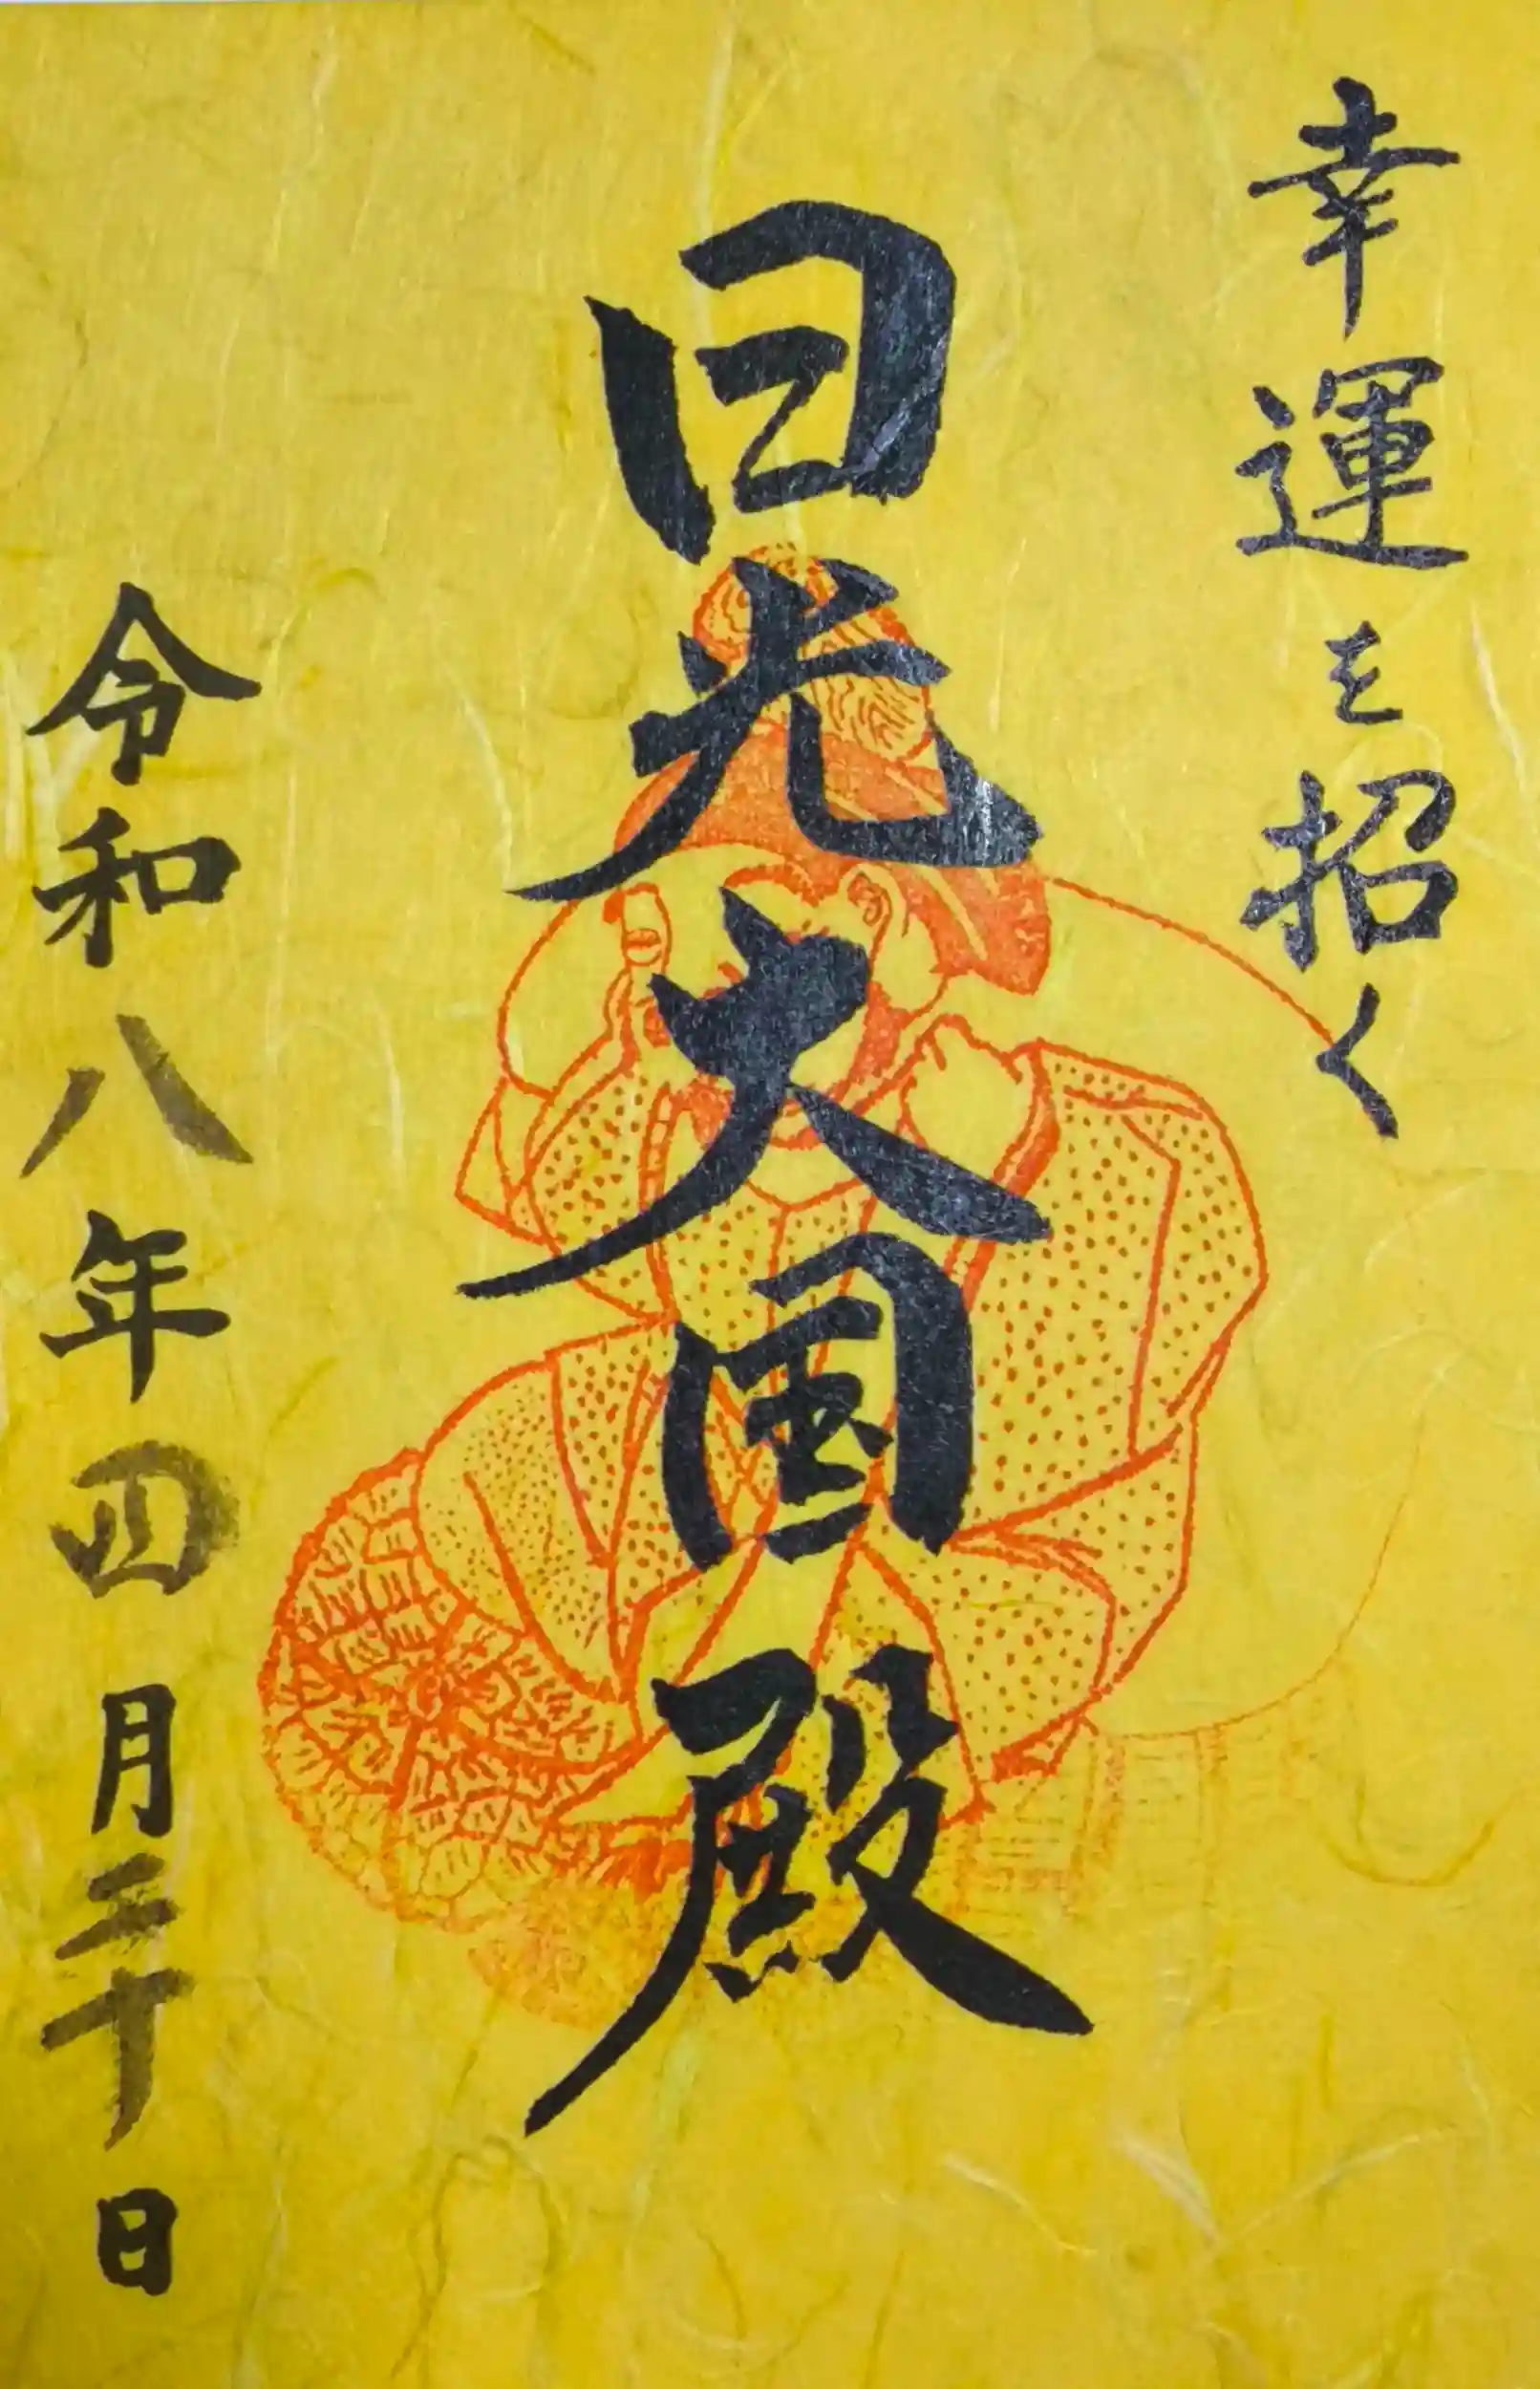 幸運を招く
日光大国殿
令和八年四月二十日